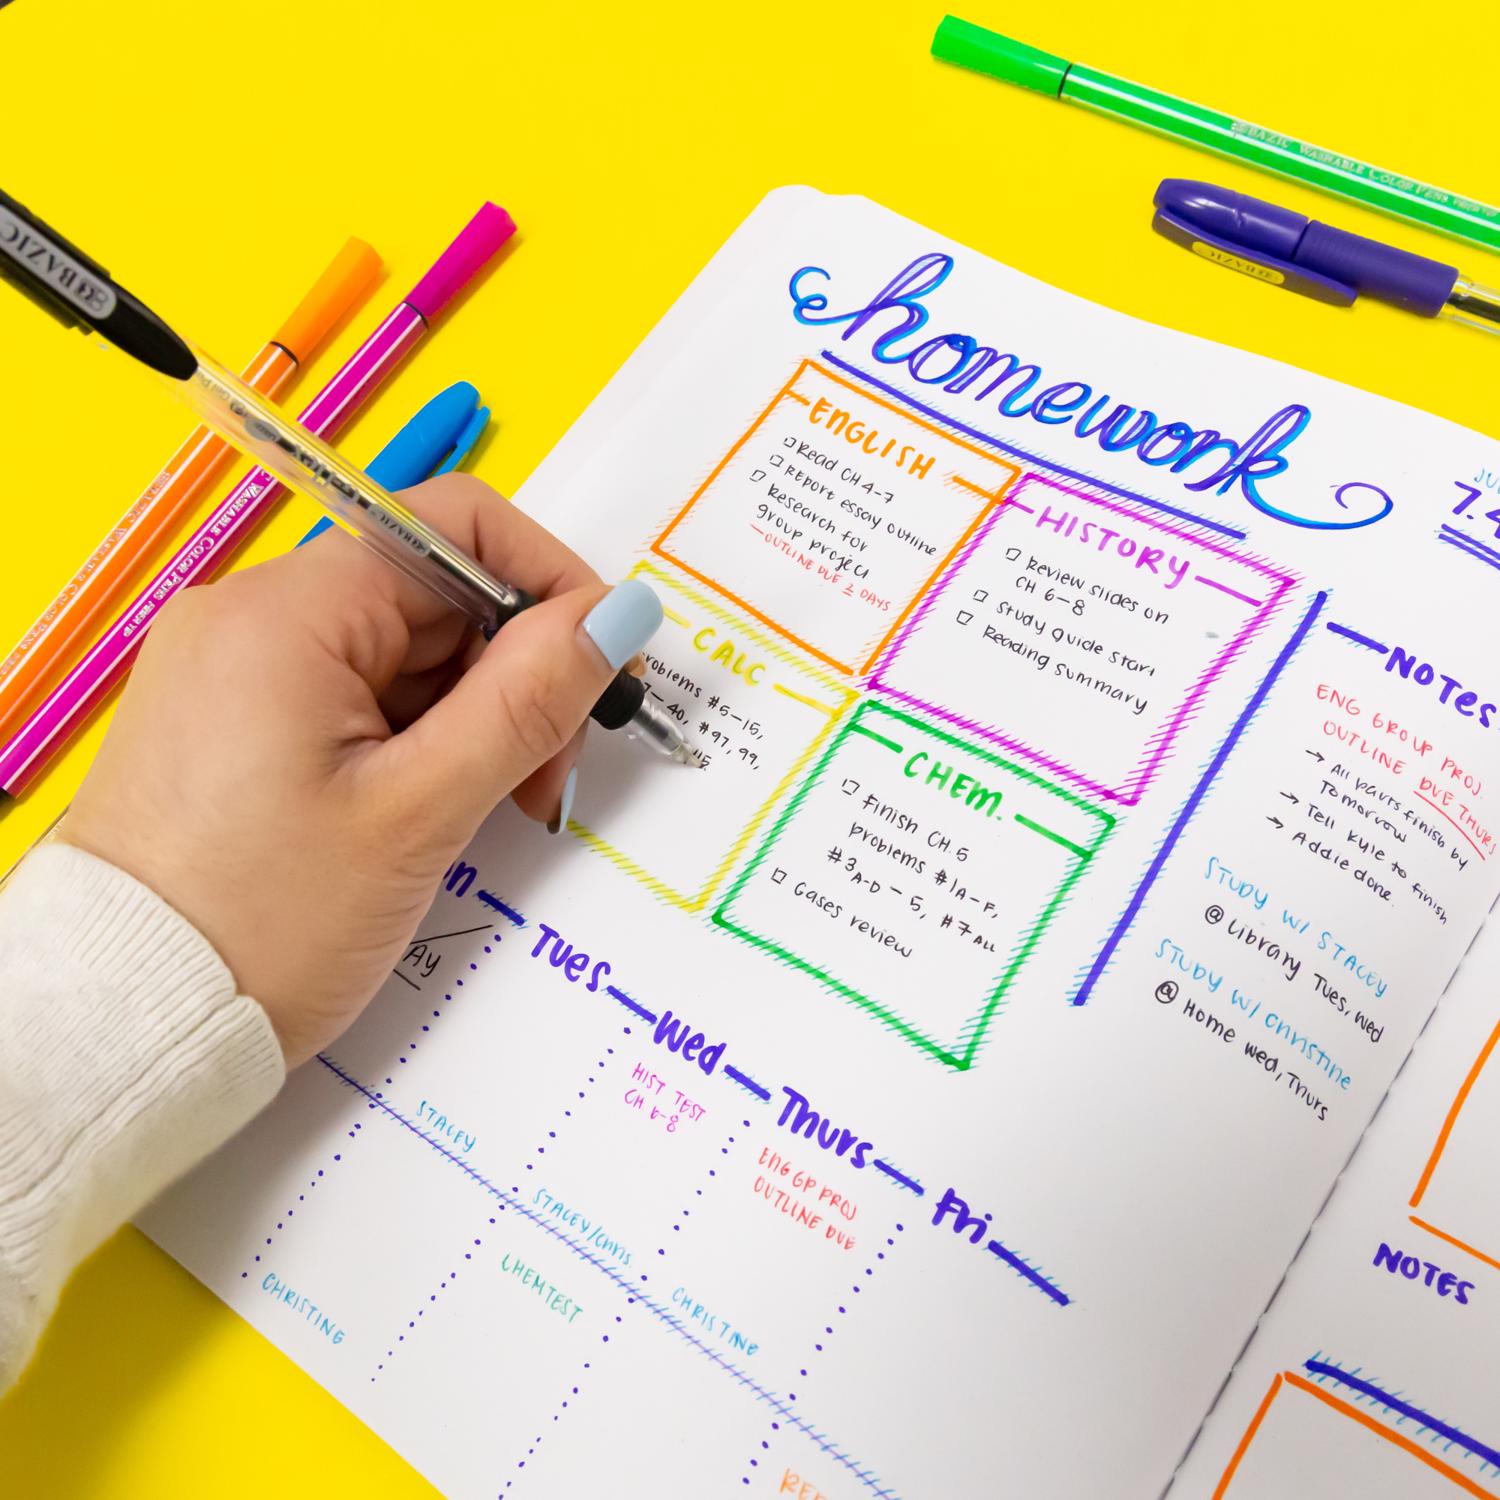 BAZIC WASHABLE COLOR PENS FIBER TIP
BAZIC
BAZIC
BAZIC
WASHABLE COLOR PENS FIBER TIP
homework
ENGLISH
Read CH 4-7
Report essay outline
Research for
group project
—OUTLINE DUE 2 DAYS
HISTORY
Review slides on
CH 6-8
Study guide start
Reading summary
CALC
#5-15,
40, #97, 99,
CHEM.
Finish CH. 5
problems #1A-F,
#3A-D - 5, #7 ALL
Gases review
7.4
NOTES
ENG GROUP PROJ.
OUTLINE DUE THURS
→ All parts finish by
Tomorrow
→ Tell Kyle to finish
→ Addie done.
STUDY w/ STACEY
@ Library Tues, Wed
STUDY w/ Christine
@ Home Wed, Thurs
Tues
Wed
Thurs
Fri
HIST TEST
CH 6-8
ENG GP PROJ
OUTLINE DUE
STACEY
STACEY/Chris.
CHRISTINE
CHRISTINE
CHEM TEST
NOTES